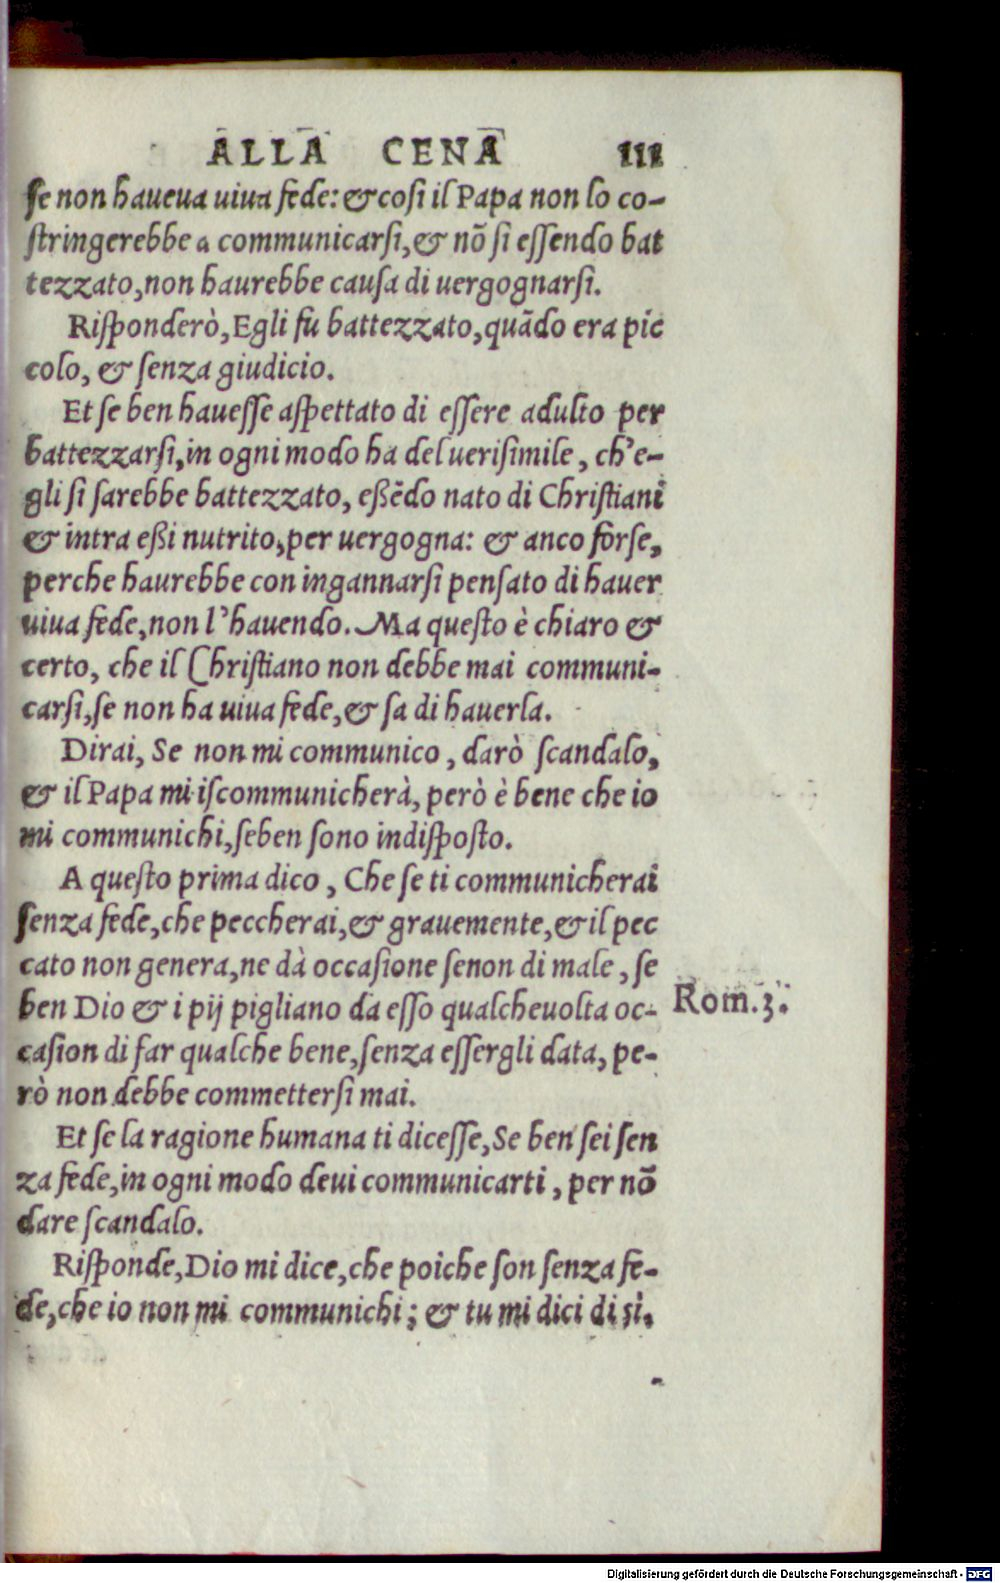 ALLA CENA 111
se non haueua uiua fede: & cosi il Papa non lo co-
stringerebbe a communicarsi, & nõ si essendo bat
tezzato, non haurebbe causa di uergognarsi.
Risponderò, Egli fu battezzato, quãdo era pic
colo, & senza giudicio.
Et se ben hauesse aspettato di essere adulto per
battezzarsi, in ogni modo ha del uerisimile, ch'e-
gli si sarebbe battezzato, eßẽdo nato di Christiani
& intra eßi nutrito, per uergogna: & anco forse,
perche haurebbe con ingannarsi pensato di hauer
uiua fede, non l'hauendo. Ma questo è chiaro &
certo, che il Christiano non debbe mai communi-
carsi, se non ha uiua fede, & sa di hauerla.
Dirai, Se non mi communico, darò scandalo,
& il Papa mi iscommunicherà, però è bene che io
mi communichi, seben sono indisposto.
A questo prima dico, Che se ti communicherai
senza fede, che peccherai, & grauemente, & il pec
cato non genera, ne dà occasione senon di male, se
ben Dio & i pij pigliano da esso qualcheuolta oc-
Rom.3.
casion di far qualche bene, senza essergli data, pe-
rò non debbe commettersi mai.
Et se la ragione humana ti dicesse, Se ben sei sen
za fede, in ogni modo deui communicarti, per nõ
dare scandalo.
Risponde, Dio mi dice, che poiche son senza fe-
de, che io non mi communichi; & tu mi dici di sì.
Digitalisierung gefördert durch die Deutsche Forschungsgemeinschaft - DFG